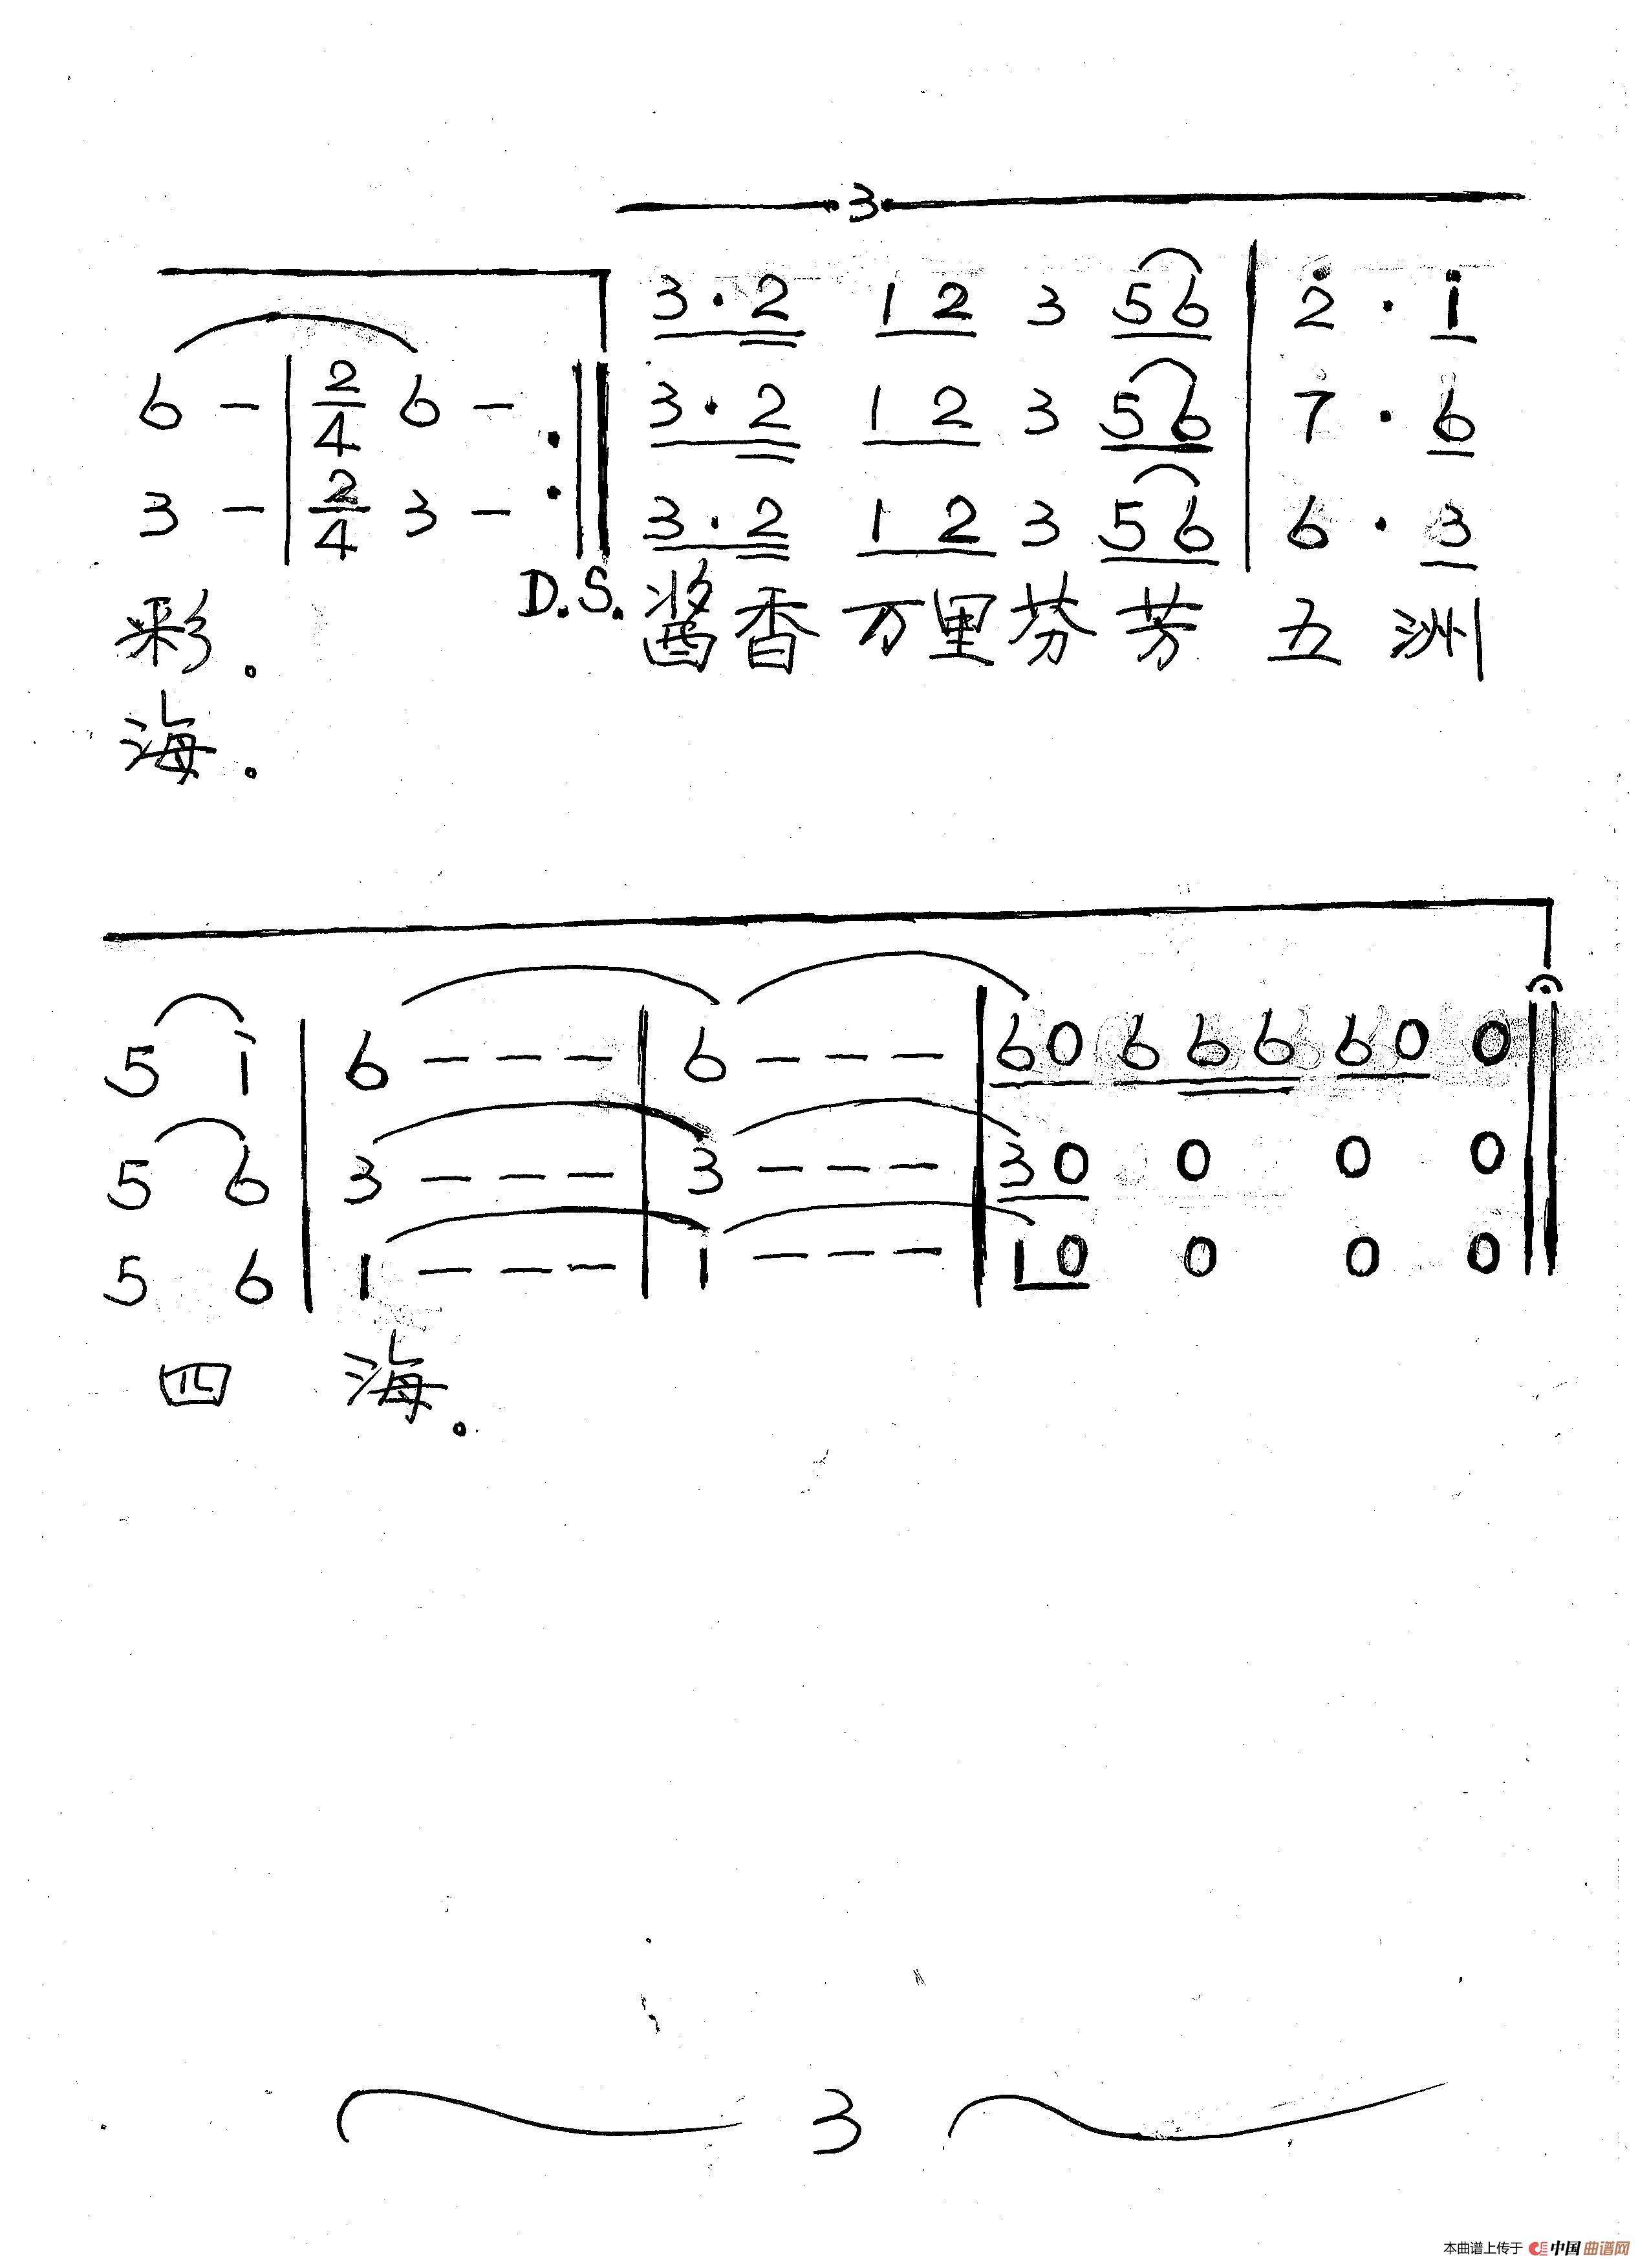 3
3·2 12 3 56 | 2̇ · 1̇
6 – | 2/4 6 – :‖ 3·2 12 3 56 | 7 · 6
3 – | 2/4 3 – :‖ 3·2 12 3 56 | 6 · 3
彩。 D.S. 酱香 万里芬芳 五洲
海。
5 1 | 6 – – – | 6 – – – | 60 666 60 0 ‖
5 6 | 3 – – – | 3 – – – | 30 0 0 0 ‖
5 6 | 1 – – – | 1 – – – | 10 0 0 0 ‖
四 海。
3
本曲谱上传于 中国曲谱网